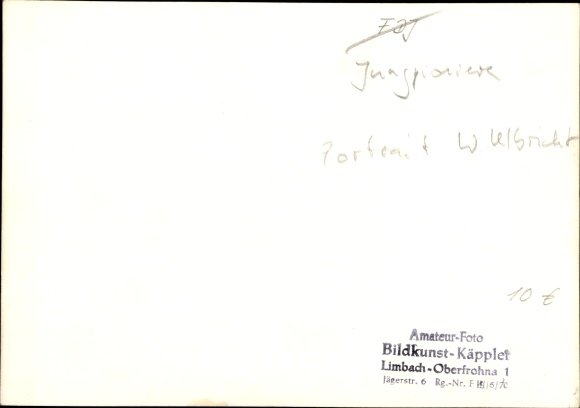 FDJ
Jungpioniere
Portrait W Ulbricht
10 €
Amateur-Foto
Bildkunst-Käppler
Limbach-Oberfrohna 1
Jägerstr. 6 Rg.-Nr. F